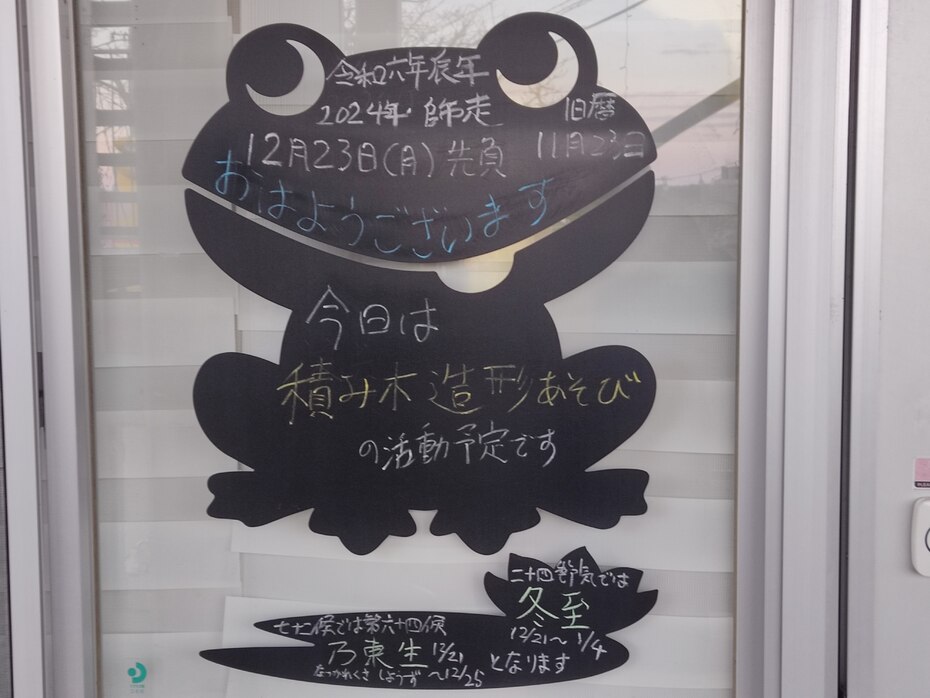 令和六年辰年
2024年・師走 旧暦
12月23日(月)先負 11月23日
おはようございます
今日は
積み木造形あそび
の活動予定です
二十四節気では
冬至
12/21～1/4
となります
七十二候では第六十四候
乃東生 12/21
なつかれくさ しょうず ～12/25